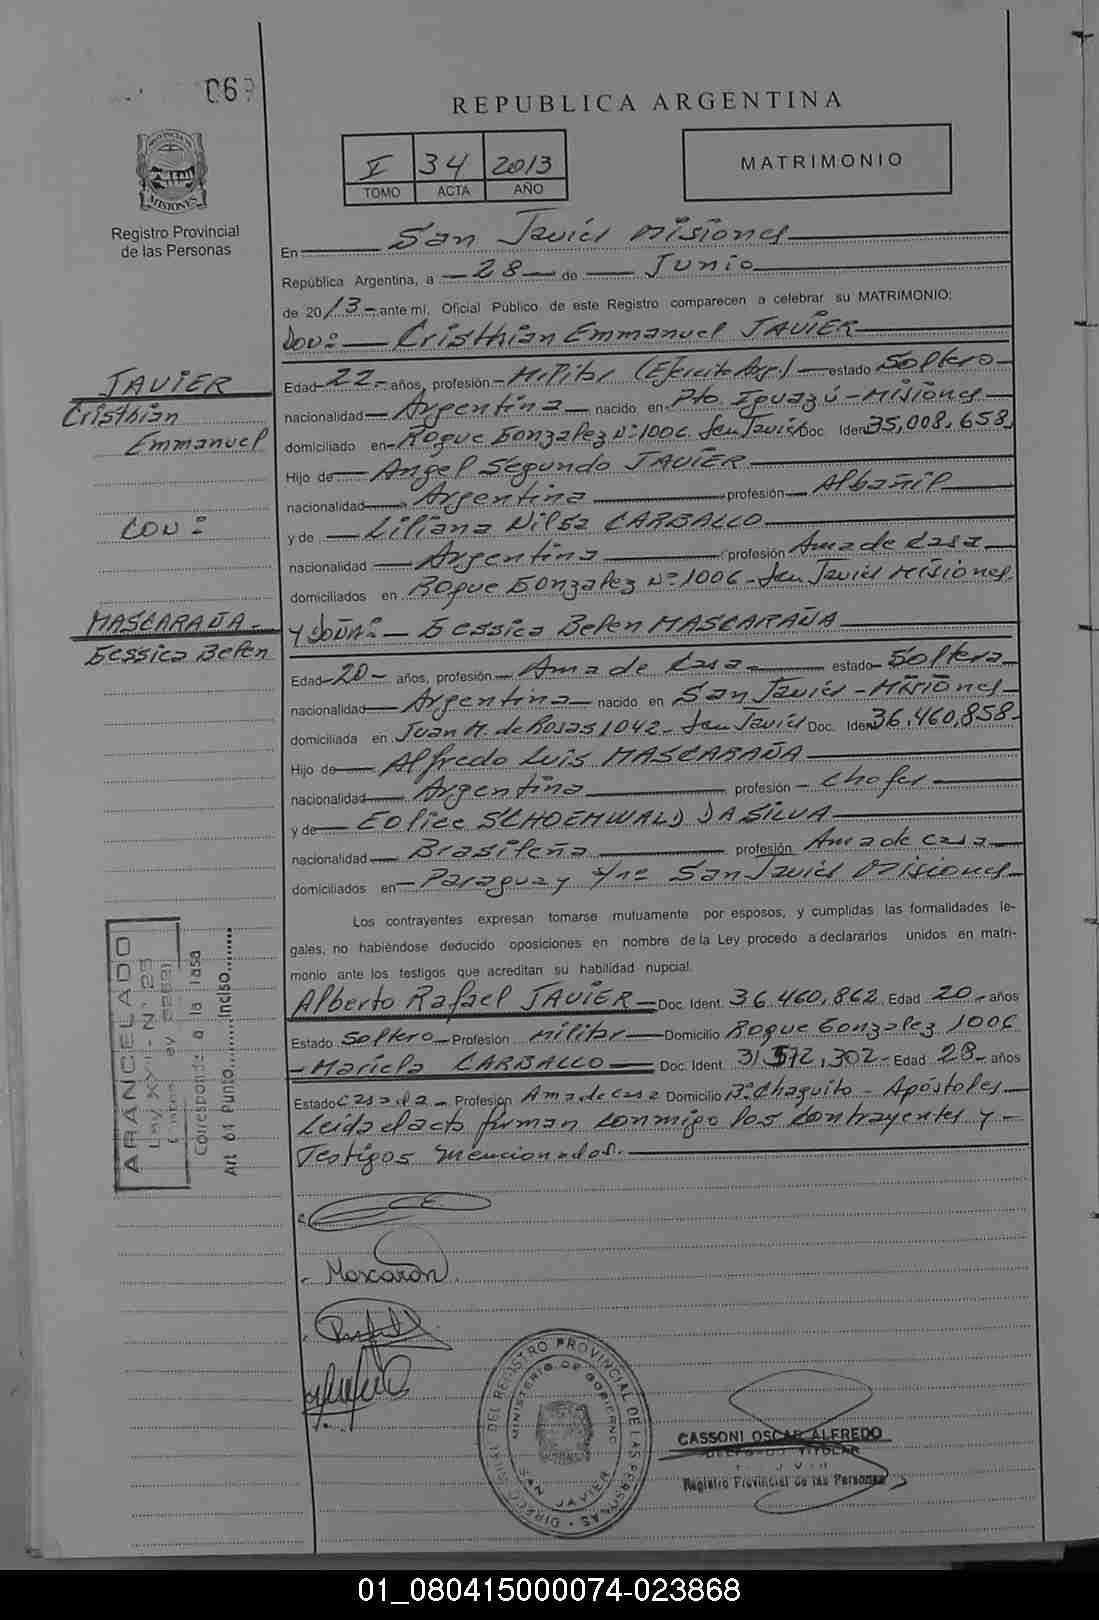 06
REPUBLICA ARGENTINA
PROVINCIA DE
MISIONES
Registro Provincial
de las Personas
I 34 2013
TOMO ACTA AÑO
MATRIMONIO
En San Javier Misiones
República Argentina, a 28 de Junio
de 2013 ante mí, Oficial Público de este Registro comparecen a celebrar su MATRIMONIO:
Don: Cristhian Emmanuel JAVIER
JAVIER
Cristhian
Emmanuel
CON:
MASCARAÑA
Gessica Belen
Edad 22 años, profesión Militar (Ejercito Arg.) estado Soltero
nacionalidad Argentina nacido en Pto. Iguazú - Misiones
domiciliado en Roque Gonzalez Nº 1006. San Javier Doc. Iden 35,008,658
Hijo de Angel Segundo JAVIER
nacionalidad Argentina profesión Albañil
y de Liliana Nilsa CARBALLO
nacionalidad Argentina profesión Ama de Casa
domiciliados en Roque Gonzalez Nº 1006 - San Javier Misiones
y Doña: Gessica Belen MASCARAÑA
Edad 20 años, profesión Ama de Casa estado Soltera
nacionalidad Argentina nacido en San Javier - Misiones
domiciliada en Juan M. de Rosas 1042 - San Javier Doc. Iden 36.460,858
Hijo de Alfredo Luis MASCARAÑA
nacionalidad Argentina profesión Chofer
y de Eolice SCHOENWALD DA SILVA
nacionalidad Brasileña profesión Ama de casa
domiciliados en Paraguay s/nº San Javier Misiones
Los contrayentes expresan tomarse mutuamente por esposos, y cumplidas las formalidades le-
gales, no habiéndose deducido oposiciones en nombre de la Ley procedo a declararlos unidos en matri-
monio ante los testigos que acreditan su habilidad nupcial.
Alberto Rafael JAVIER Doc. Ident. 36.460,862 Edad 20 años
Estado Soltero Profesión Militar Domicilio Roque Gonzalez 1006
Mariela CARBALLO Doc. Ident. 31,572,302 Edad 28 años
Estado Casada Profesión Ama de Casa Domicilio Bº Chaquito - Apóstoles
Leida el acta firman conmigo los contrayentes y
Testigos mencionados.
ARANCELADO
Ley XVII - Nº 25
Corresponde a la tasa
Art. 61 Punto Inciso
Mascaron
DIREC. GRAL. DEL REGISTRO PROVINCIAL DE LAS PERSONAS
MINISTERIO DE GOBIERNO
SAN JAVIER
CASSONI OSCAR ALFREDO
DELEGADO TITULAR
Registro Provincial de las Personas
01_080415000074-023868